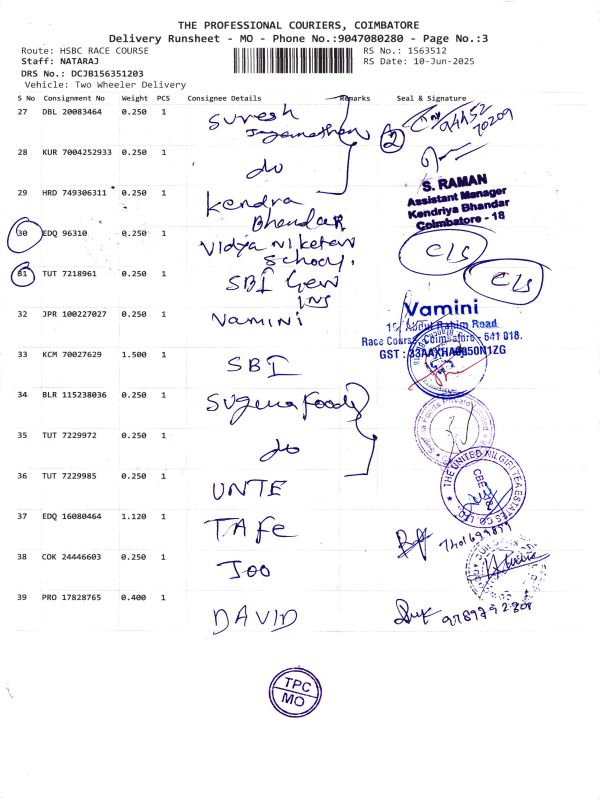 THE PROFESSIONAL COURIERS, COIMBATORE
Delivery Runsheet - MO - Phone No.:9047080280 - Page No.:3
Route: HSBC RACE COURSE
RS No.: 1563512
Staff: NATARAJ
RS Date: 10-Jun-2025
DRS No.: DCJB156351203
Vehicle: Two Wheeler Delivery
S No Consignment No Weight PCS Consignee Details Remarks Seal & Signature
27 DBL 20083464 0.250 1 Suresh
Jaganathan
2
94452
70209
28 KUR 7004252933 0.250 1 do
29 HRD 749306311 0.250 1 Kendra
Bhandar
S. RAMAN
Assistant Manager
Kendriya Bhandar
Coimbatore - 18
30 EDQ 96310 0.250 1 Vidya Niketan
School,
C/S
31 TUT 7218961 0.250 1 SBI Gen
Ins
C/S
32 JPR 100227027 0.250 1 Vamini
Vamini
Abdul Rahim Road
Race Course, Coimbatore - 641 018.
GST : 33AAXHA0950N1ZG
33 KCM 70027629 1.500 1 SBI
34 BLR 115238036 0.250 1 Suguna Foods
35 TUT 7229972 0.250 1 do
36 TUT 7229985 0.250 1 UNTE
THE UNITED NILGIRI TEA ESTATES CO. LTD.
CBE
37 EDQ 16080464 1.120 1 TAFe
38 COK 24446603 0.250 1 Joo
39 PRO 17828765 0.400 1 DAVID
TPC
MO